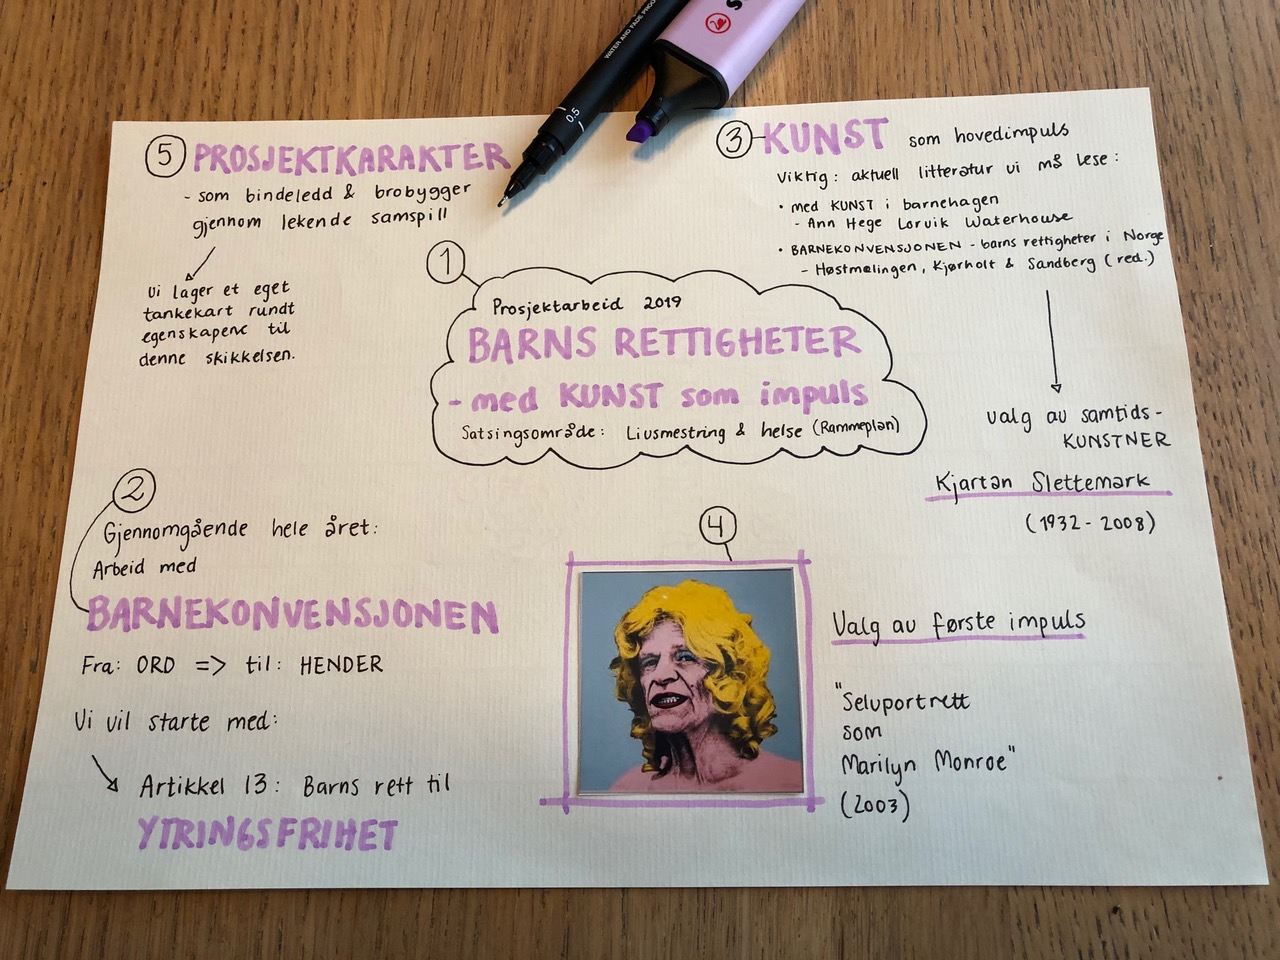 WATER AND FADE PROOF
0.5
S
5 PROSJEKTKARAKTER
- som bindeledd & brobygger
gjennom lekende samspill
Vi lager et eget
tankekart rundt
egenskapene til
denne skikkelsen.
3 KUNST som hovedimpuls
Viktig: aktuell litteratur vi må lese:
• med KUNST i barnehagen
- Ann Hege Lorvik Waterhouse
• BARNEKONVENSJONEN - barns rettigheter i Norge
- Høstmælingen, Kjørholt & Sandberg (red.)
valg av samtids-
KUNSTNER
Kjartan Slettemark
(1932-2008)
1
Prosjektarbeid 2019
BARNS RETTIGHETER
- med KUNST som impuls
Satsingsområde: Livsmestring & helse (Rammeplan)
2
Gjennomgående hele året:
Arbeid med
BARNEKONVENSJONEN
Fra: ORD => til: HENDER
Vi vil starte med:
Artikkel 13: Barns rett til
YTRINGSFRIHET
4
Valg av første impuls
"Selvportrett
som
Marilyn Monroe"
(2003)